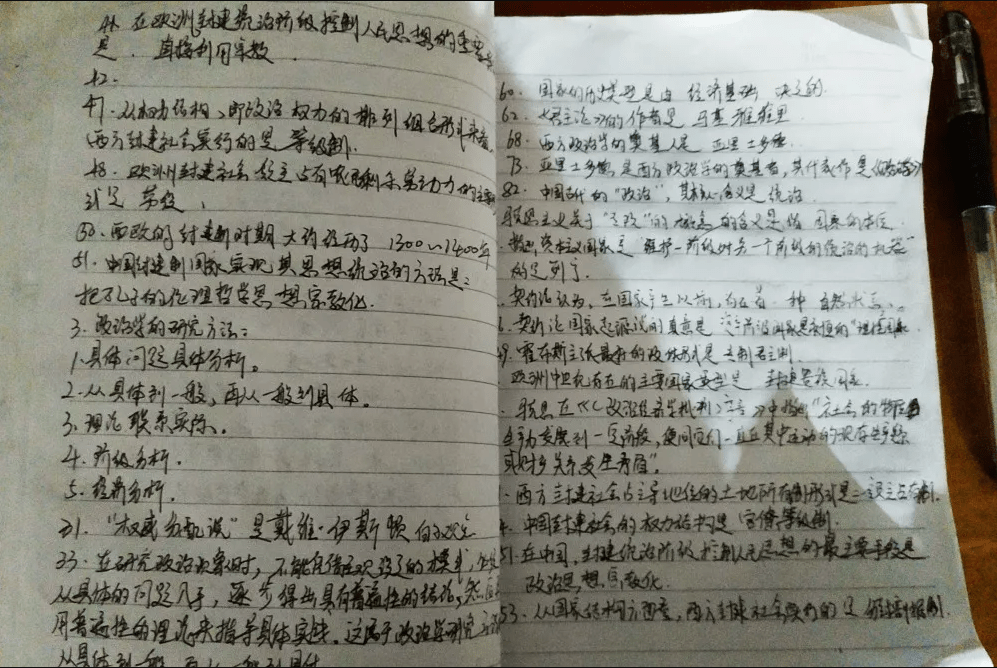 在欧洲封建统治阶级控制人民思想的重要
是 直接利用宗教
42.
47.从权力结构,即政治权力的排列组合形式来看,
西方封建社会实行的是等级制.
48.欧洲封建社会领主占有农民剩余劳动力的主要
式是 劳役.
50.西欧的封建时期大约经历了1300~1400年
51.中国封建制国家实现其思想统治的方法是:
把孔子的伦理哲学思想宗教化.
3.政治学的研究方法:
1.具体问题具体分析。
2.从具体到一般,再从一般到具体.
3.理论联系实际.
4.阶级分析.
5.经济分析.
31."权威分配说"是戴维·伊斯顿的观点
33.在研究政治现象时,不能自信主观设定的模式,
从具体的问题入手,逐步得出具有普遍性的结论,然后
用普遍性的理论来指导具体实践.这属于政治学研究方法
从具体到一般,再从一般到具体
60.国家的历史类型是由 经济基础 决定的.
62.《君主论》的作者是 马基雅维里
68.西方政治学的奠基人是 亚里士多德
73.亚里士多德是西方政治学的奠基者,其代表作是《政治学》
82.中国古代的"政治",其核心含义是统治.
的概念的含义是指 国家的本位.
资本主义国家是"维护一阶级对另一个阶级的统治的机器"
的是列宁.
契约论认为,在国家产生以前,存在着一种 自然状态.
契约论国家起源说的真意是
霍布斯主张最好的政体形式是 君主制.
欧洲中世纪存在的主要国家类型是 封建等级国家.
马克思在《<政治经济学批判>序言》中指出"社会的物质
生产力发展到一定阶段,便同它们一直在其中运动的现存生产关系
或财产关系发生矛盾".
西方封建社会占主导地位的土地所有制形式是 领主占有制.
中国封建社会的权力结构是 官僚等级制.
51.在中国,封建统治阶级控制人民思想的最主要手段是
政治思想宗教化.
53.从国家结构方面看,西方封建社会实行的是